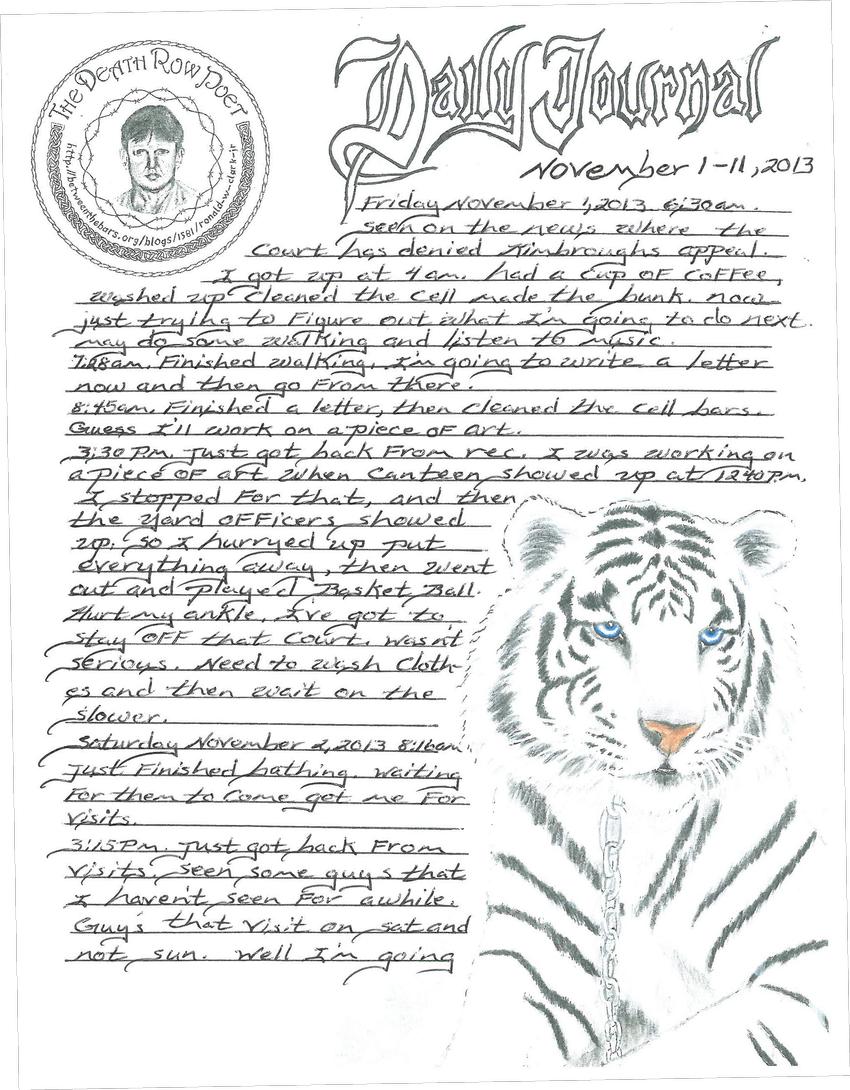 THE DEATH ROW POET
http://betweenthebars.org/blogs/1581/ronald-w-clark-jr
Daily Journal
November 1-11, 2013
Friday November 1, 2013 6:30am.
seen on the news where the
court has denied Kimbroughs appeal.
I got up at 4am. had a cup of coffee,
washed up cleaned the cell made the bunk. now
just trying to figure out what I'm going to do next.
may do some walking and listen to music.
7:28am. Finished walking. I'm going to write a letter
now and then go from there.
8:45am. Finished a letter, then cleaned the cell bars.
Guess I'll work on a piece of art.
3:30 P.m. Just got back from rec. I was working on
a piece of art when canteen showed up at 12:40 P.m.
I stopped for that, and then
the yard officers showed
up. so I hurryed up put
everything away, then went
out and played Basket Ball.
Hurt my ankle. I've got to
stay off that court. wasn't
serious. Need to wash cloth-
es and then wait on the
slower.
Saturday November 2, 2013 8:16am.
Just Finished bathing. waiting
for them to come get me for
visits.
3:15 P.m. Just got back from
visits. seen some guys that
I haven't seen for awhile.
Guy's that visit on sat and
not sun. Well I'm going